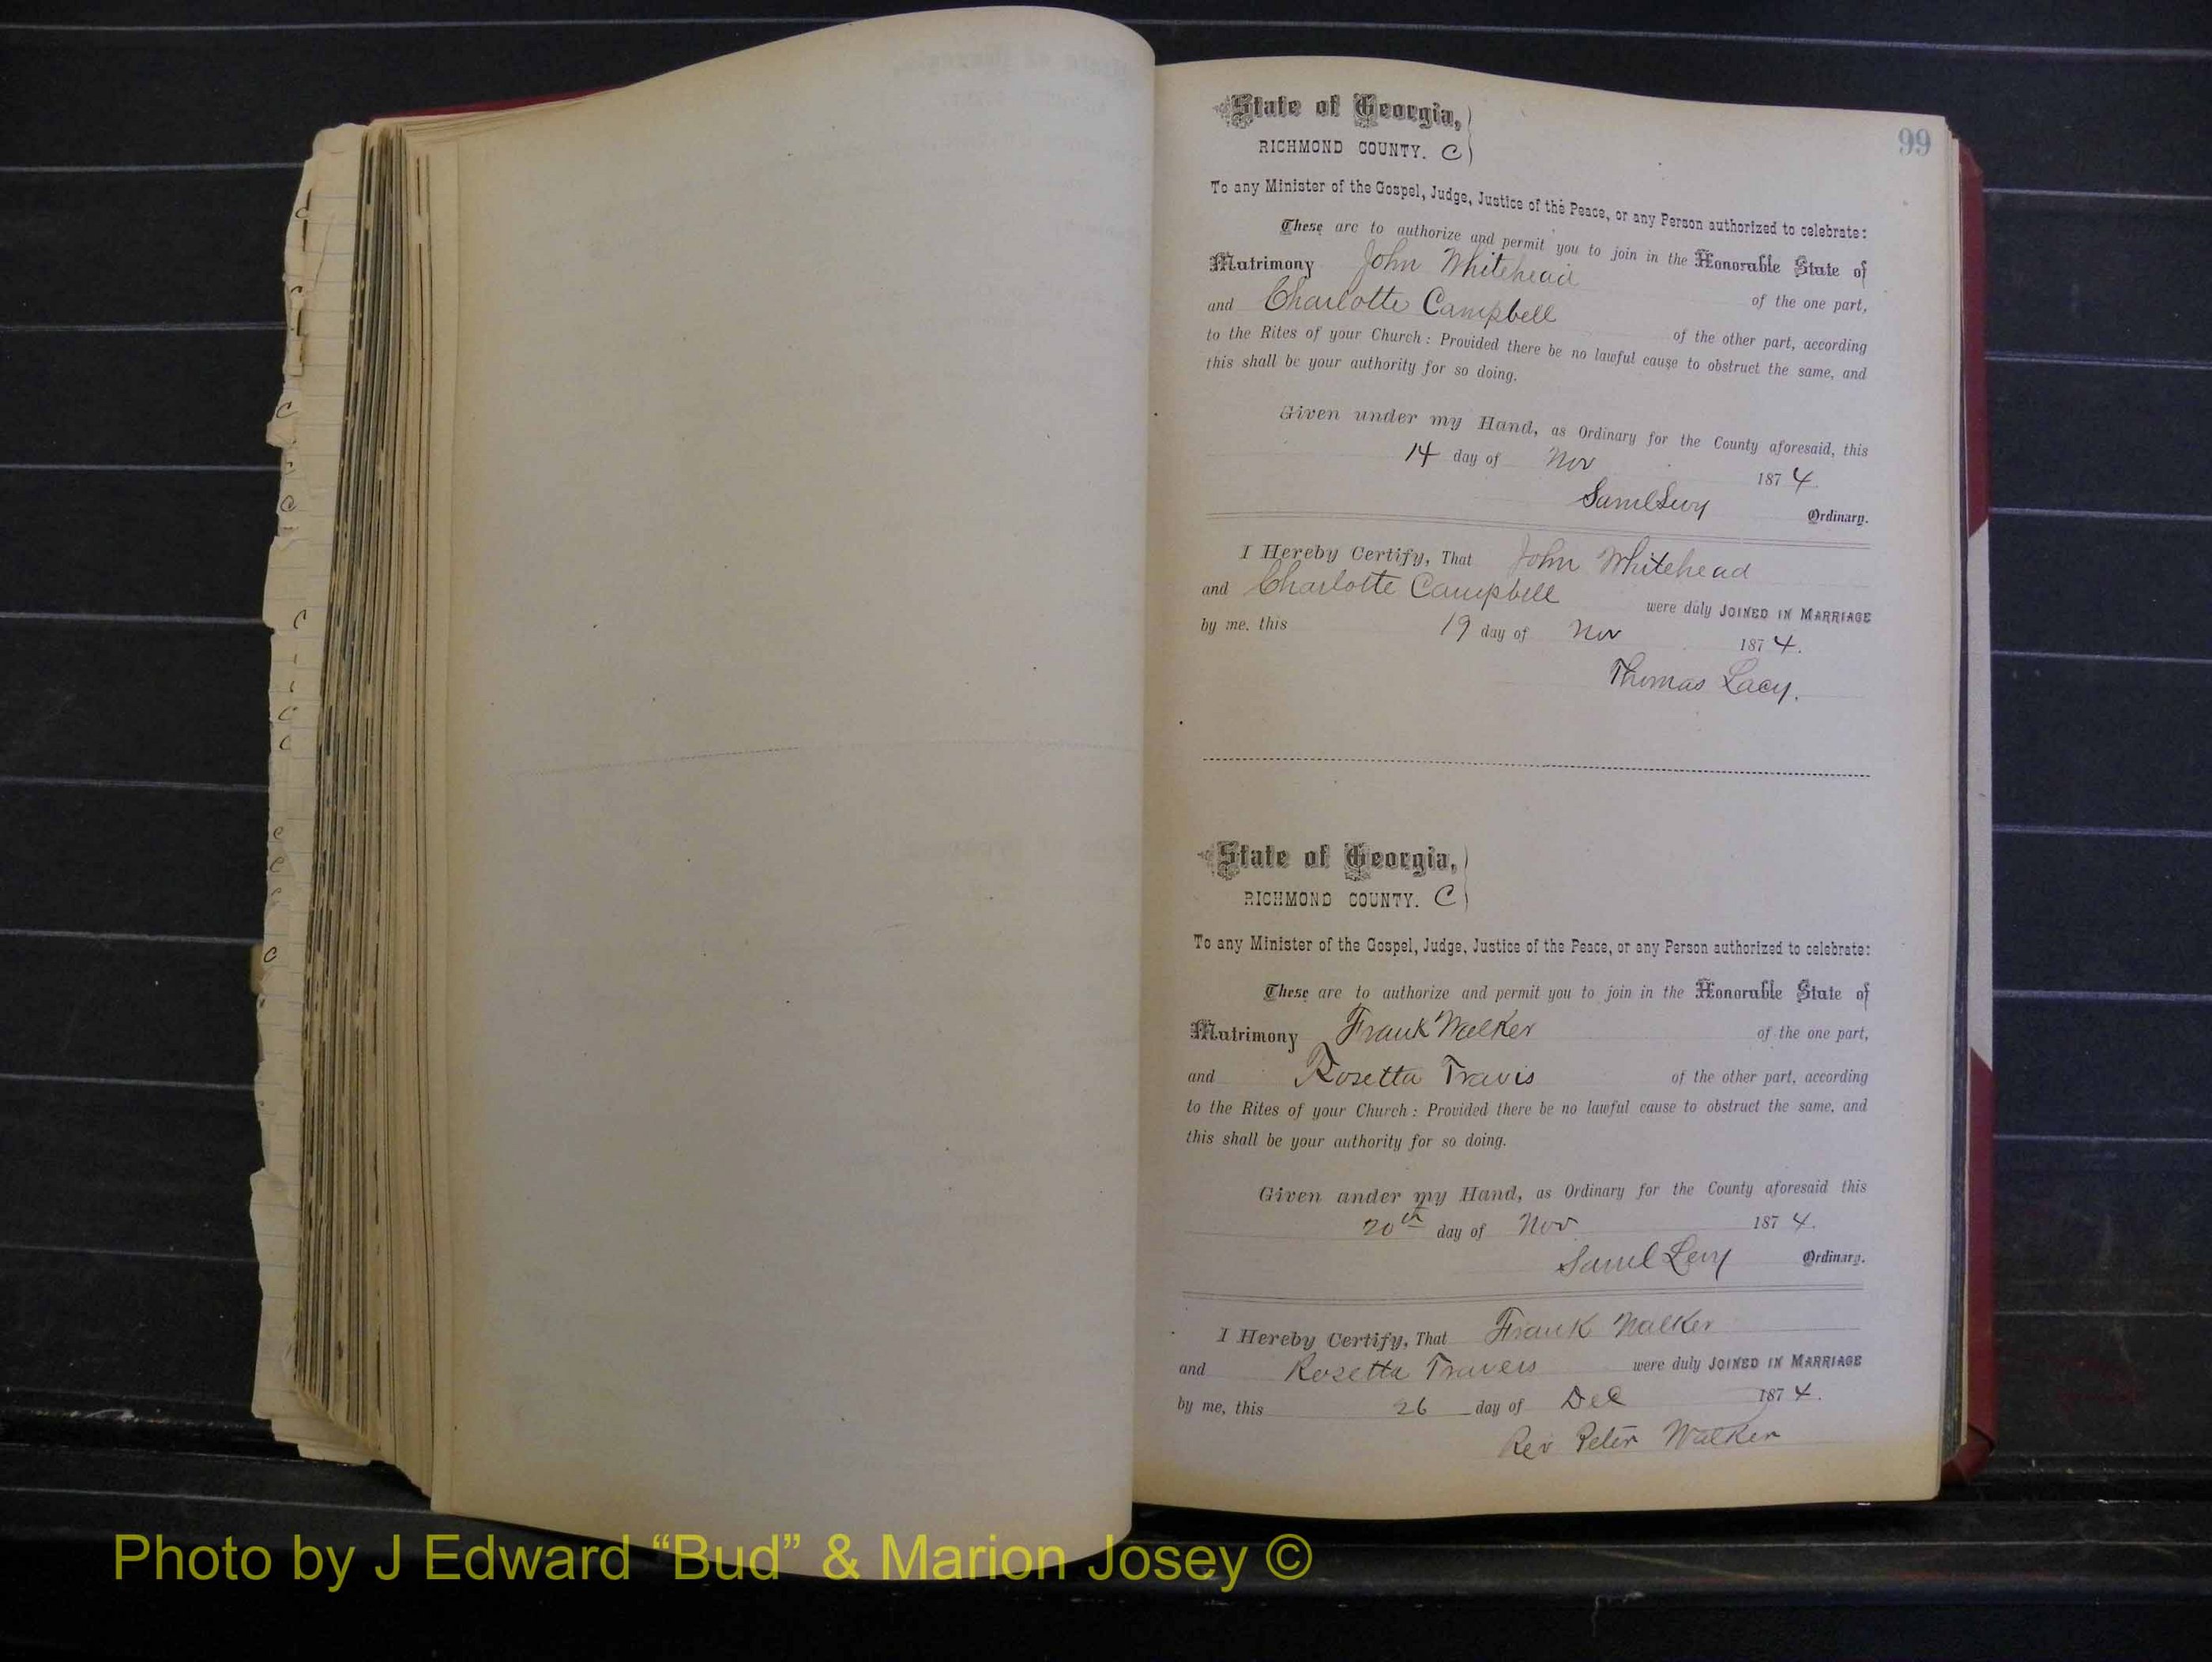 99
State of Georgia,
RICHMOND COUNTY. C
To any Minister of the Gospel, Judge, Justice of the Peace, or any Person authorized to celebrate:
These are to authorize and permit you to join in the Honorable State of
Matrimony John Whitehead of the one part,
and Charlotte Campbell of the other part, according
to the Rites of your Church: Provided there be no lawful cause to obstruct the same, and
this shall be your authority for so doing.
Given under my Hand, as Ordinary for the County aforesaid, this
14 day of Nov 1874.
Saml Levy Ordinary.
I Hereby Certify, That John Whitehead
and Charlotte Campbell were duly JOINED IN MARRIAGE
by me, this 19 day of Nov 1874.
Thomas Lacy.
State of Georgia,
RICHMOND COUNTY. C
To any Minister of the Gospel, Judge, Justice of the Peace, or any Person authorized to celebrate:
These are to authorize and permit you to join in the Honorable State of
Matrimony Frank Walker of the one part,
and Rosetta Travis of the other part, according
to the Rites of your Church: Provided there be no lawful cause to obstruct the same, and
this shall be your authority for so doing.
Given under my Hand, as Ordinary for the County aforesaid this
20th day of Nov 1874.
Saml Levy Ordinary.
I Hereby Certify, That Frank Walker
and Rosetta Travers were duly JOINED IN MARRIAGE
by me, this 26 day of Dec 1874.
Rev Peter Walker
Photo by J Edward “Bud” & Marion Josey ©